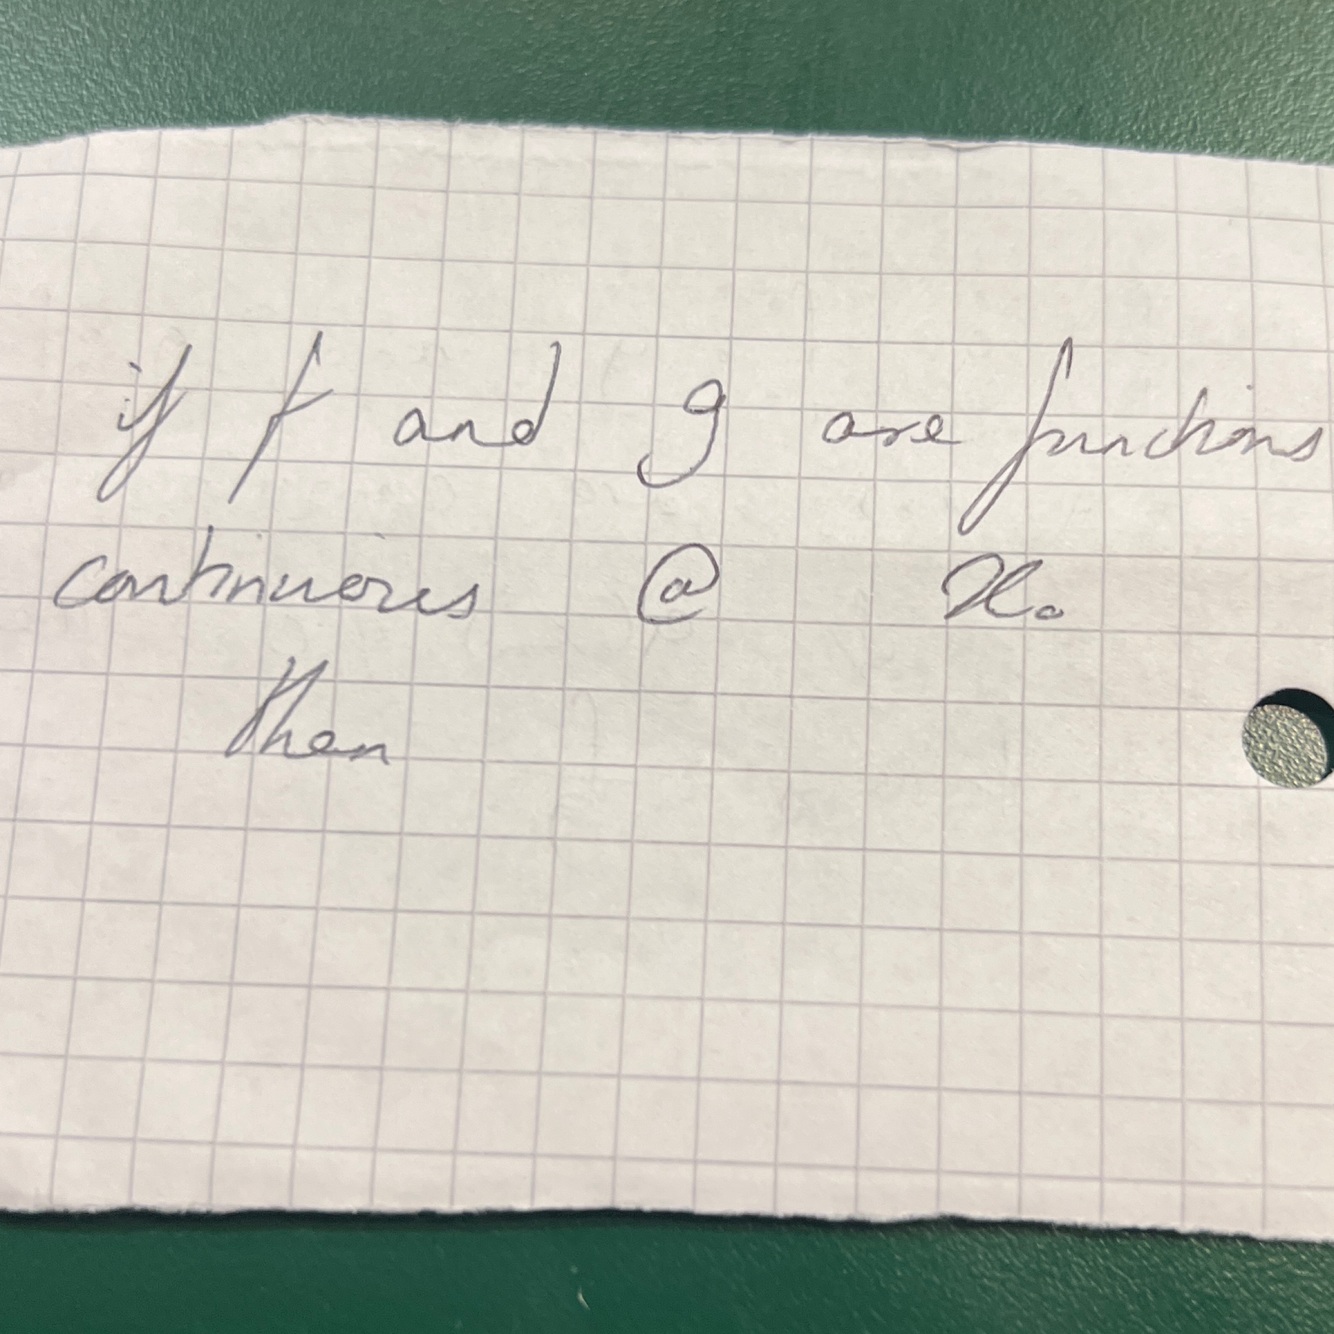 if f and g are functions
continuous @ x₀
then